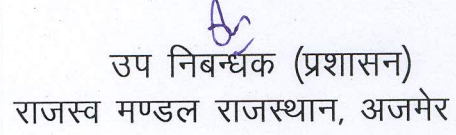 उप निबन्धक (प्रशासन)
राजस्व मण्डल राजस्थान, अजमेर